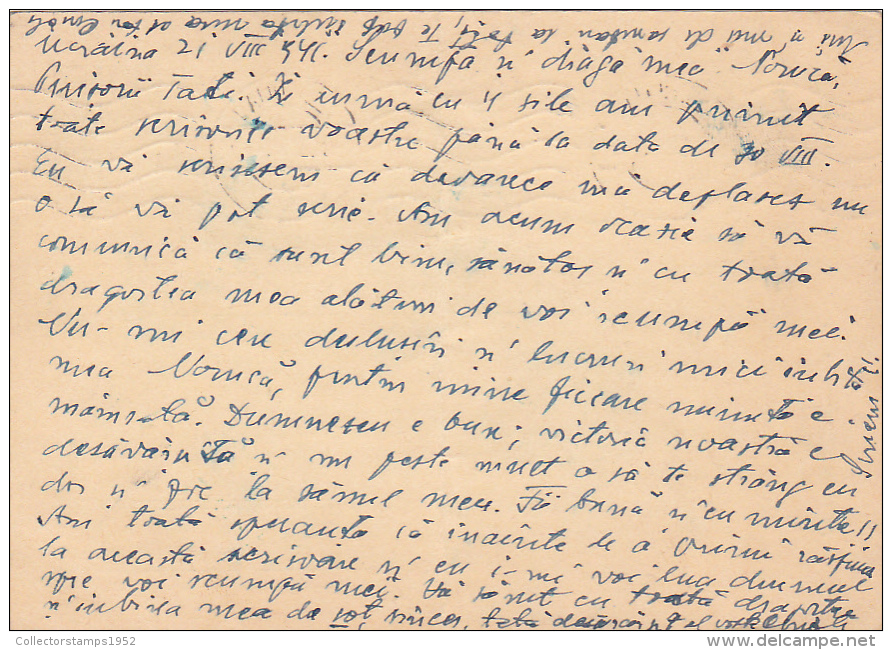 Ucraina 21 VIII 942. Scumpa și draga mea Norică,
Puișorii Tati. În urmă cu 4 zile am primit
toate scrisorile voastre până la data de 30 VIII.
Eu vă scrisesem că deoarece mă deplasez nu
o să vă pot scrie. Am acum ocazie să vă
comunică că sunt bine, sănătos și cu toată
dragostea mea alături de voi scumpă mei.
Nu-mi cere dulusuri și lucruri mici iubita
mea Norică, pentru mine fiecare minută e
număr-tă. Dumnezeu e bun, victoria noastră e
desăvârșită și nu peste mult o să te strâng cu
dor și foc la sânul meu. Fii bună și cu minte
Am toată speranța că înainte de a primi
la această scrisoare și eu îmi voi lua drumul
spre voi scumpă mei. Vă sărut cu toată dragostea
și iubirea mea de soț, sincer, tată
Collectorstamps1952
delcampe.net